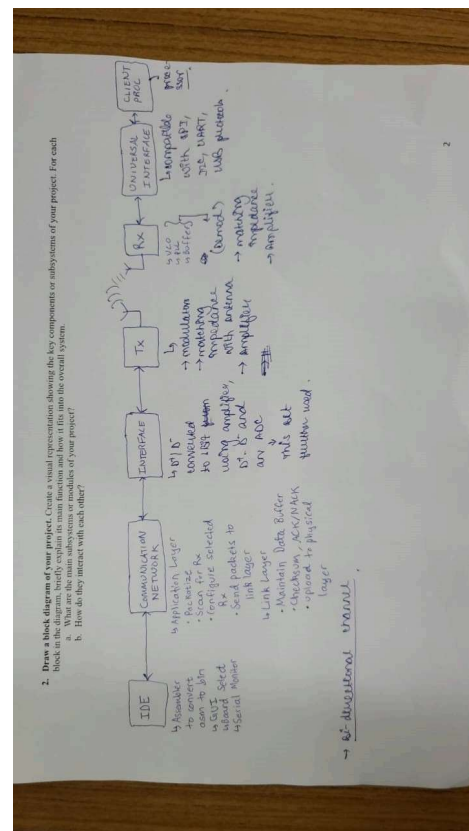 2. Draw a block diagram of your project. Create a visual representation showing the key components or subsystems of your project. For each
block in the diagram, briefly explain its main function and how it fits into the overall system.
a. What are the main subsystems or modules of your project?
b. How do they interact with each other?
IDE
↳ Assembler
to convert
asm to bin
↳ GUI
↳ Board Select
↳ Serial Monitor
COMMUNICATION
NETWORK
↳ Application Layer
• Packetize
• Scan for Rx
• Configure selected
Rx
• Send packets to
link layer
↳ Link Layer
• Maintain Data Buffer
• Checksum, ACK/NACK
• Upload to physical
layer
INTERFACE
↳ D+/D-
converted
to
using amplifier,
D+ - D- and
an ADC
↓
this bit
further used.
Tx
↳
→ modulation
→ matching
impedance
with antenna
→ Amplifier
Rx
↳ VCO
↳ PLL
↳ buffers
(Demod)
→ matching
impedance
→ Amplifier.
UNIVERSAL
INTERFACE
↳ compatible
with SPI,
I2C, UART,
USB protocols.
CLIENT
PROC
→ bi-directional channel.
2